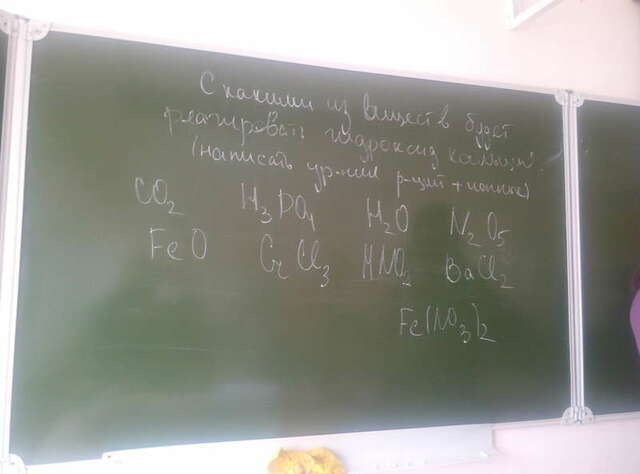 С какими из веществ будет
реагировать гидроксид кальция?
(написать ур-ния р-ций + ионика)
CO2 H3PO4 H2O N2O5
FeO CrCl3 HNO2 BaCl2
Fe(NO3)2